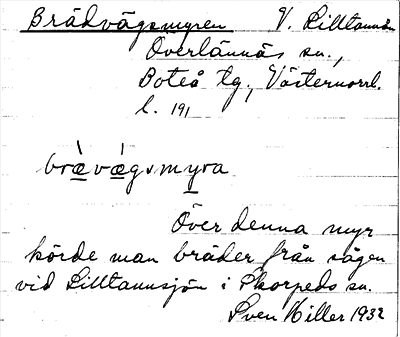 Brädvägsmyren V. Lilltannsjön
Överlännäs sn.,
Boteå tg., Västernorrl.
l. 191
bræ̀væ̀gsmyra
Över denna myr
körde man bräder från sågen
vid Lilltannsjön i Skorpeds sn.
Sven Hiller 1932